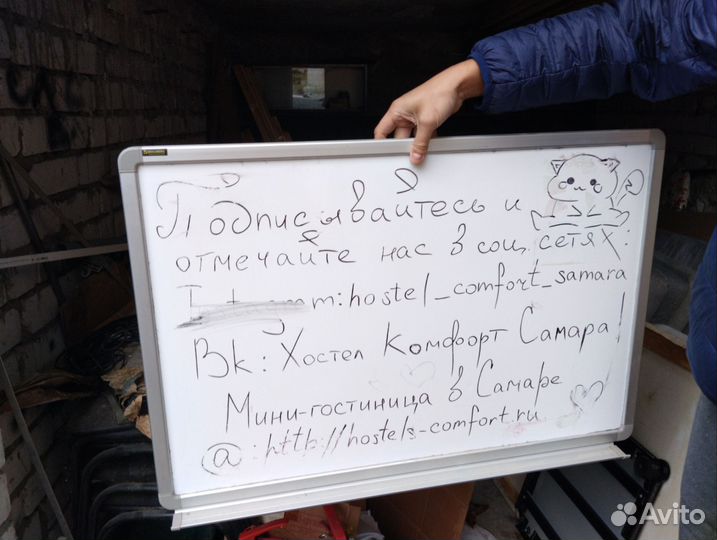 Подписывайтесь и
отмечайте нас в соц. сетях:
hostel_comfort_samara
Вк: Хостел Комфорт Самара!
Мини-гостиница в Самаре
@: http://hostels-comfort.ru
Avito